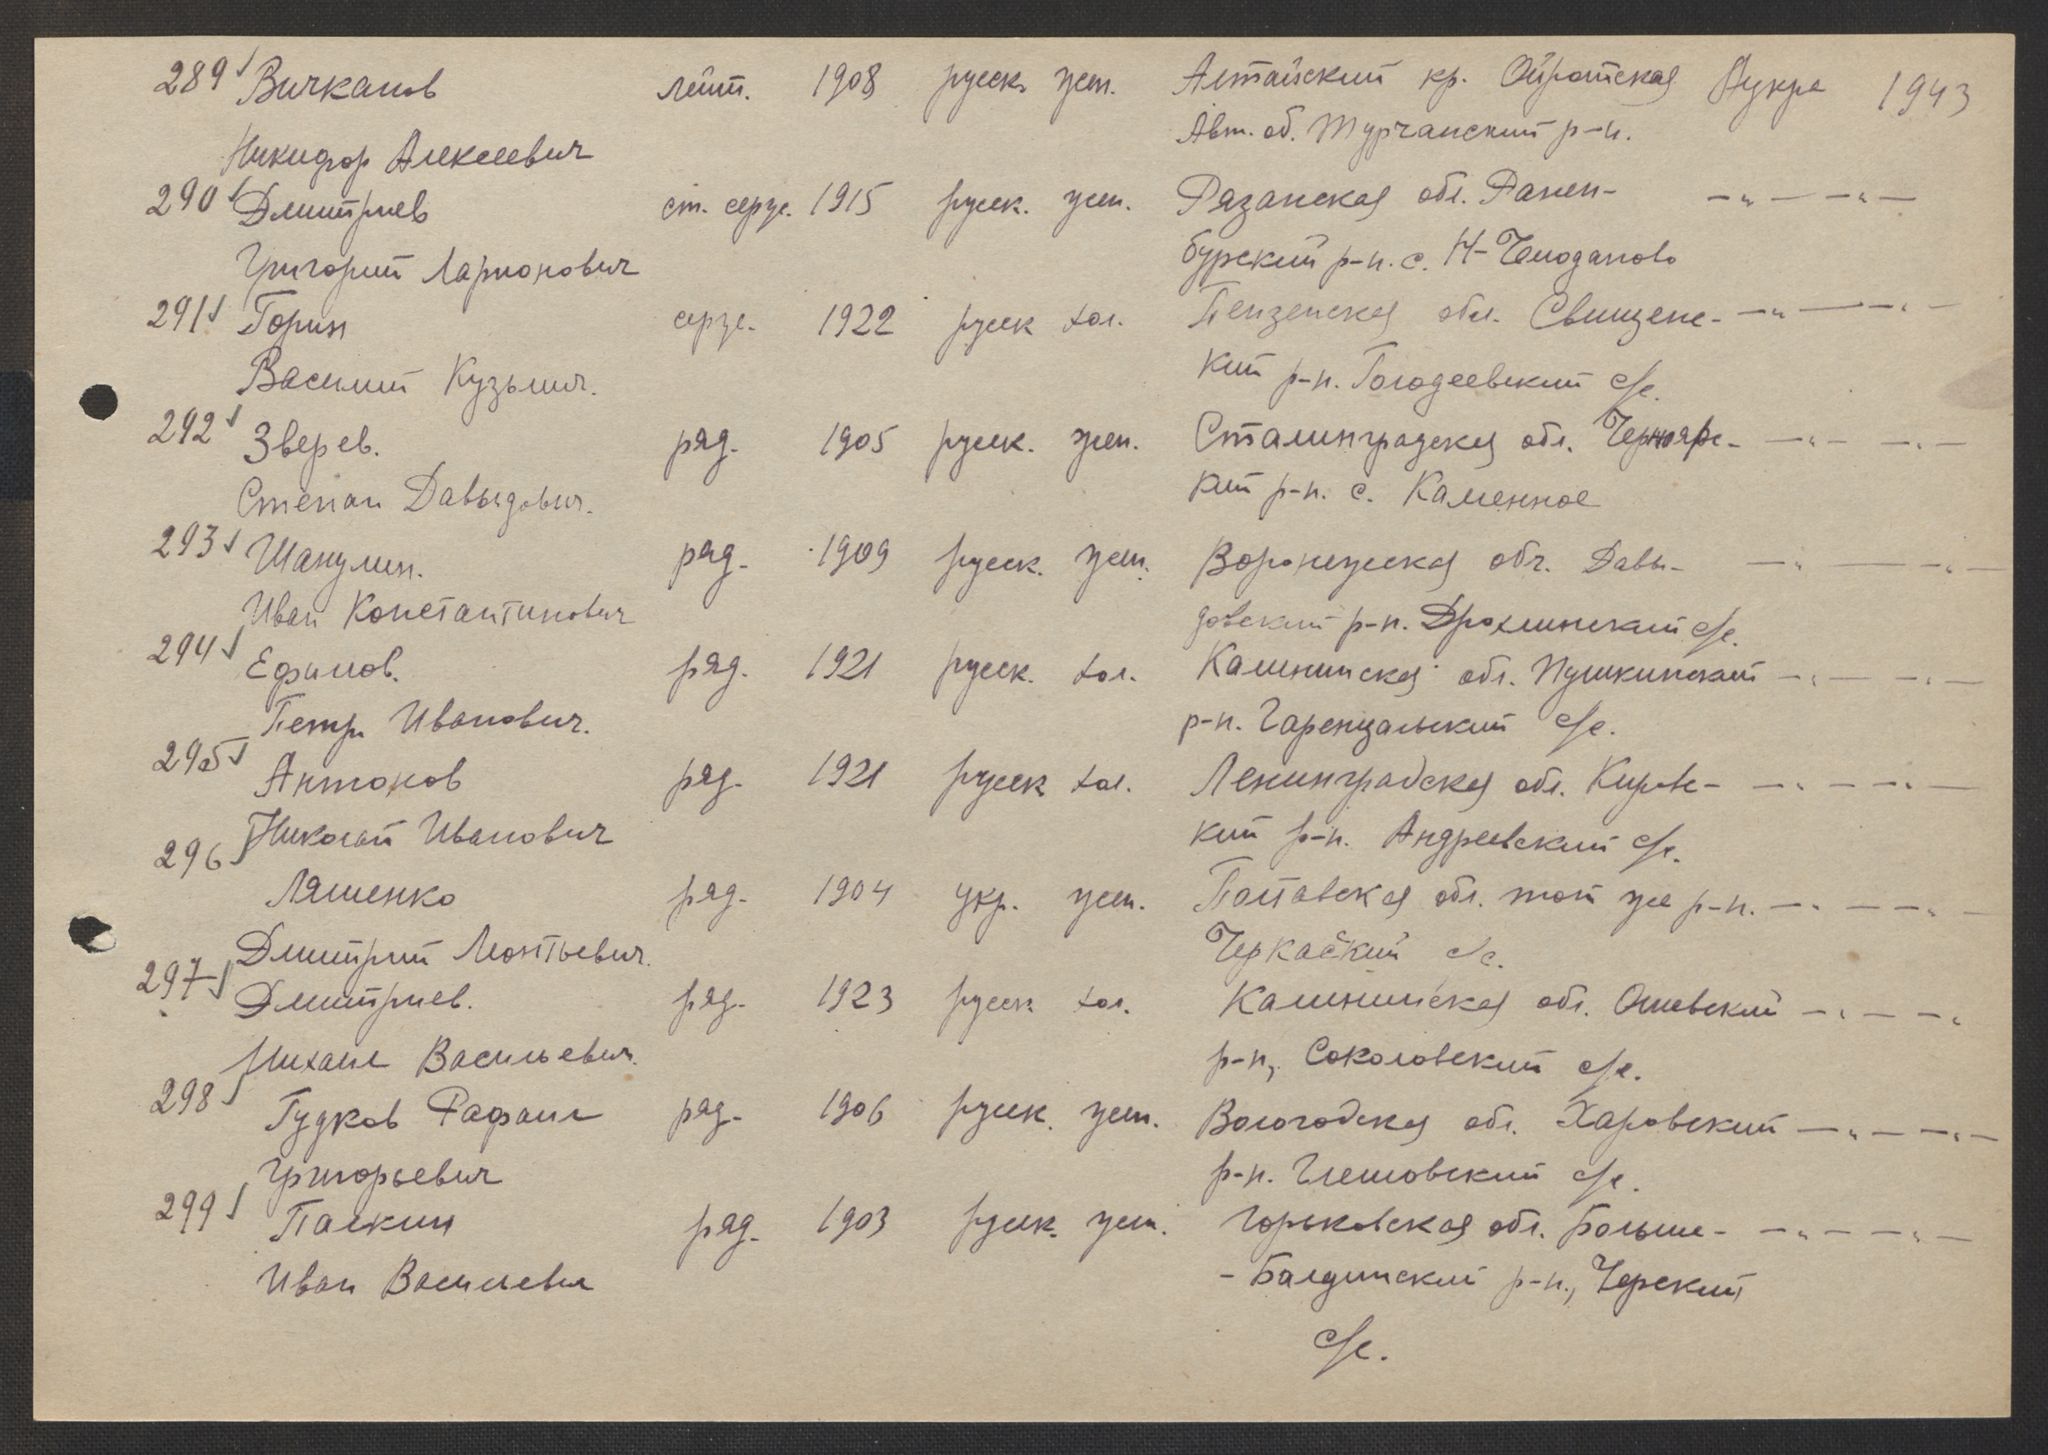 289 Вичканов лейт. 1908 русск. жен. Алтайский кр. Ойротская 1943
Никифор Алексеевич Авт. об. Турчанский р-н.
290 Дмитриев ст. серж. 1915 русск. жен. Рязанская обл. Ранен- —„— —„—
Григорий Ларионович бурский р-н. с. Н-Чемоданово
291 Горин серж. 1922 русск хол. Пензенская обл. Свищенс- —„— —„—
Василий Кузьмич. кий р-н. с/с.
292 Зверев. ряд. 1905 русск. жен. Сталинградская обл. Чернояре- —„— —„—
Степан Давыдович. кий р-н. с. Каменное
293 Шанулин. ряд. 1909 русск. жен. Воронежская обл. Давы- —„— —„—
Иван Константинович довский р-н. с/с.
294 Ефимов. ряд. 1921 русск. хол. Калининская обл. Пушкинский —„— —„—
Петр Иванович. р-н. с/с.
295 Антонов ряд. 1921 русск хол. Ленинградская обл. Кировс- —„— —„—
Николай Иванович кий р-н. Андреевский с/с.
296 Ляшенко ряд. 1904 укр. жен. Полтавская обл. той же р-н. —„— —„—
Дмитрий Леонтьевич. Черкаский с/с.
297 Дмитриев. ряд. 1923 русск хол. Калининская обл. Ошевский —„— —„
Михаил Васильевич. р-н, Соколовский с/с.
298 Гудков Рафаил ряд. 1906 русск. жен. Вологодская обл. Харовский —„— —„—
Григорьевич р-н. с/с.
299 Палкин ряд. 1903 русск. жен. Горьковская обл. Больше- —„— —„—
Иван Васильевич -Балдинский р-н., Черский
с/с.